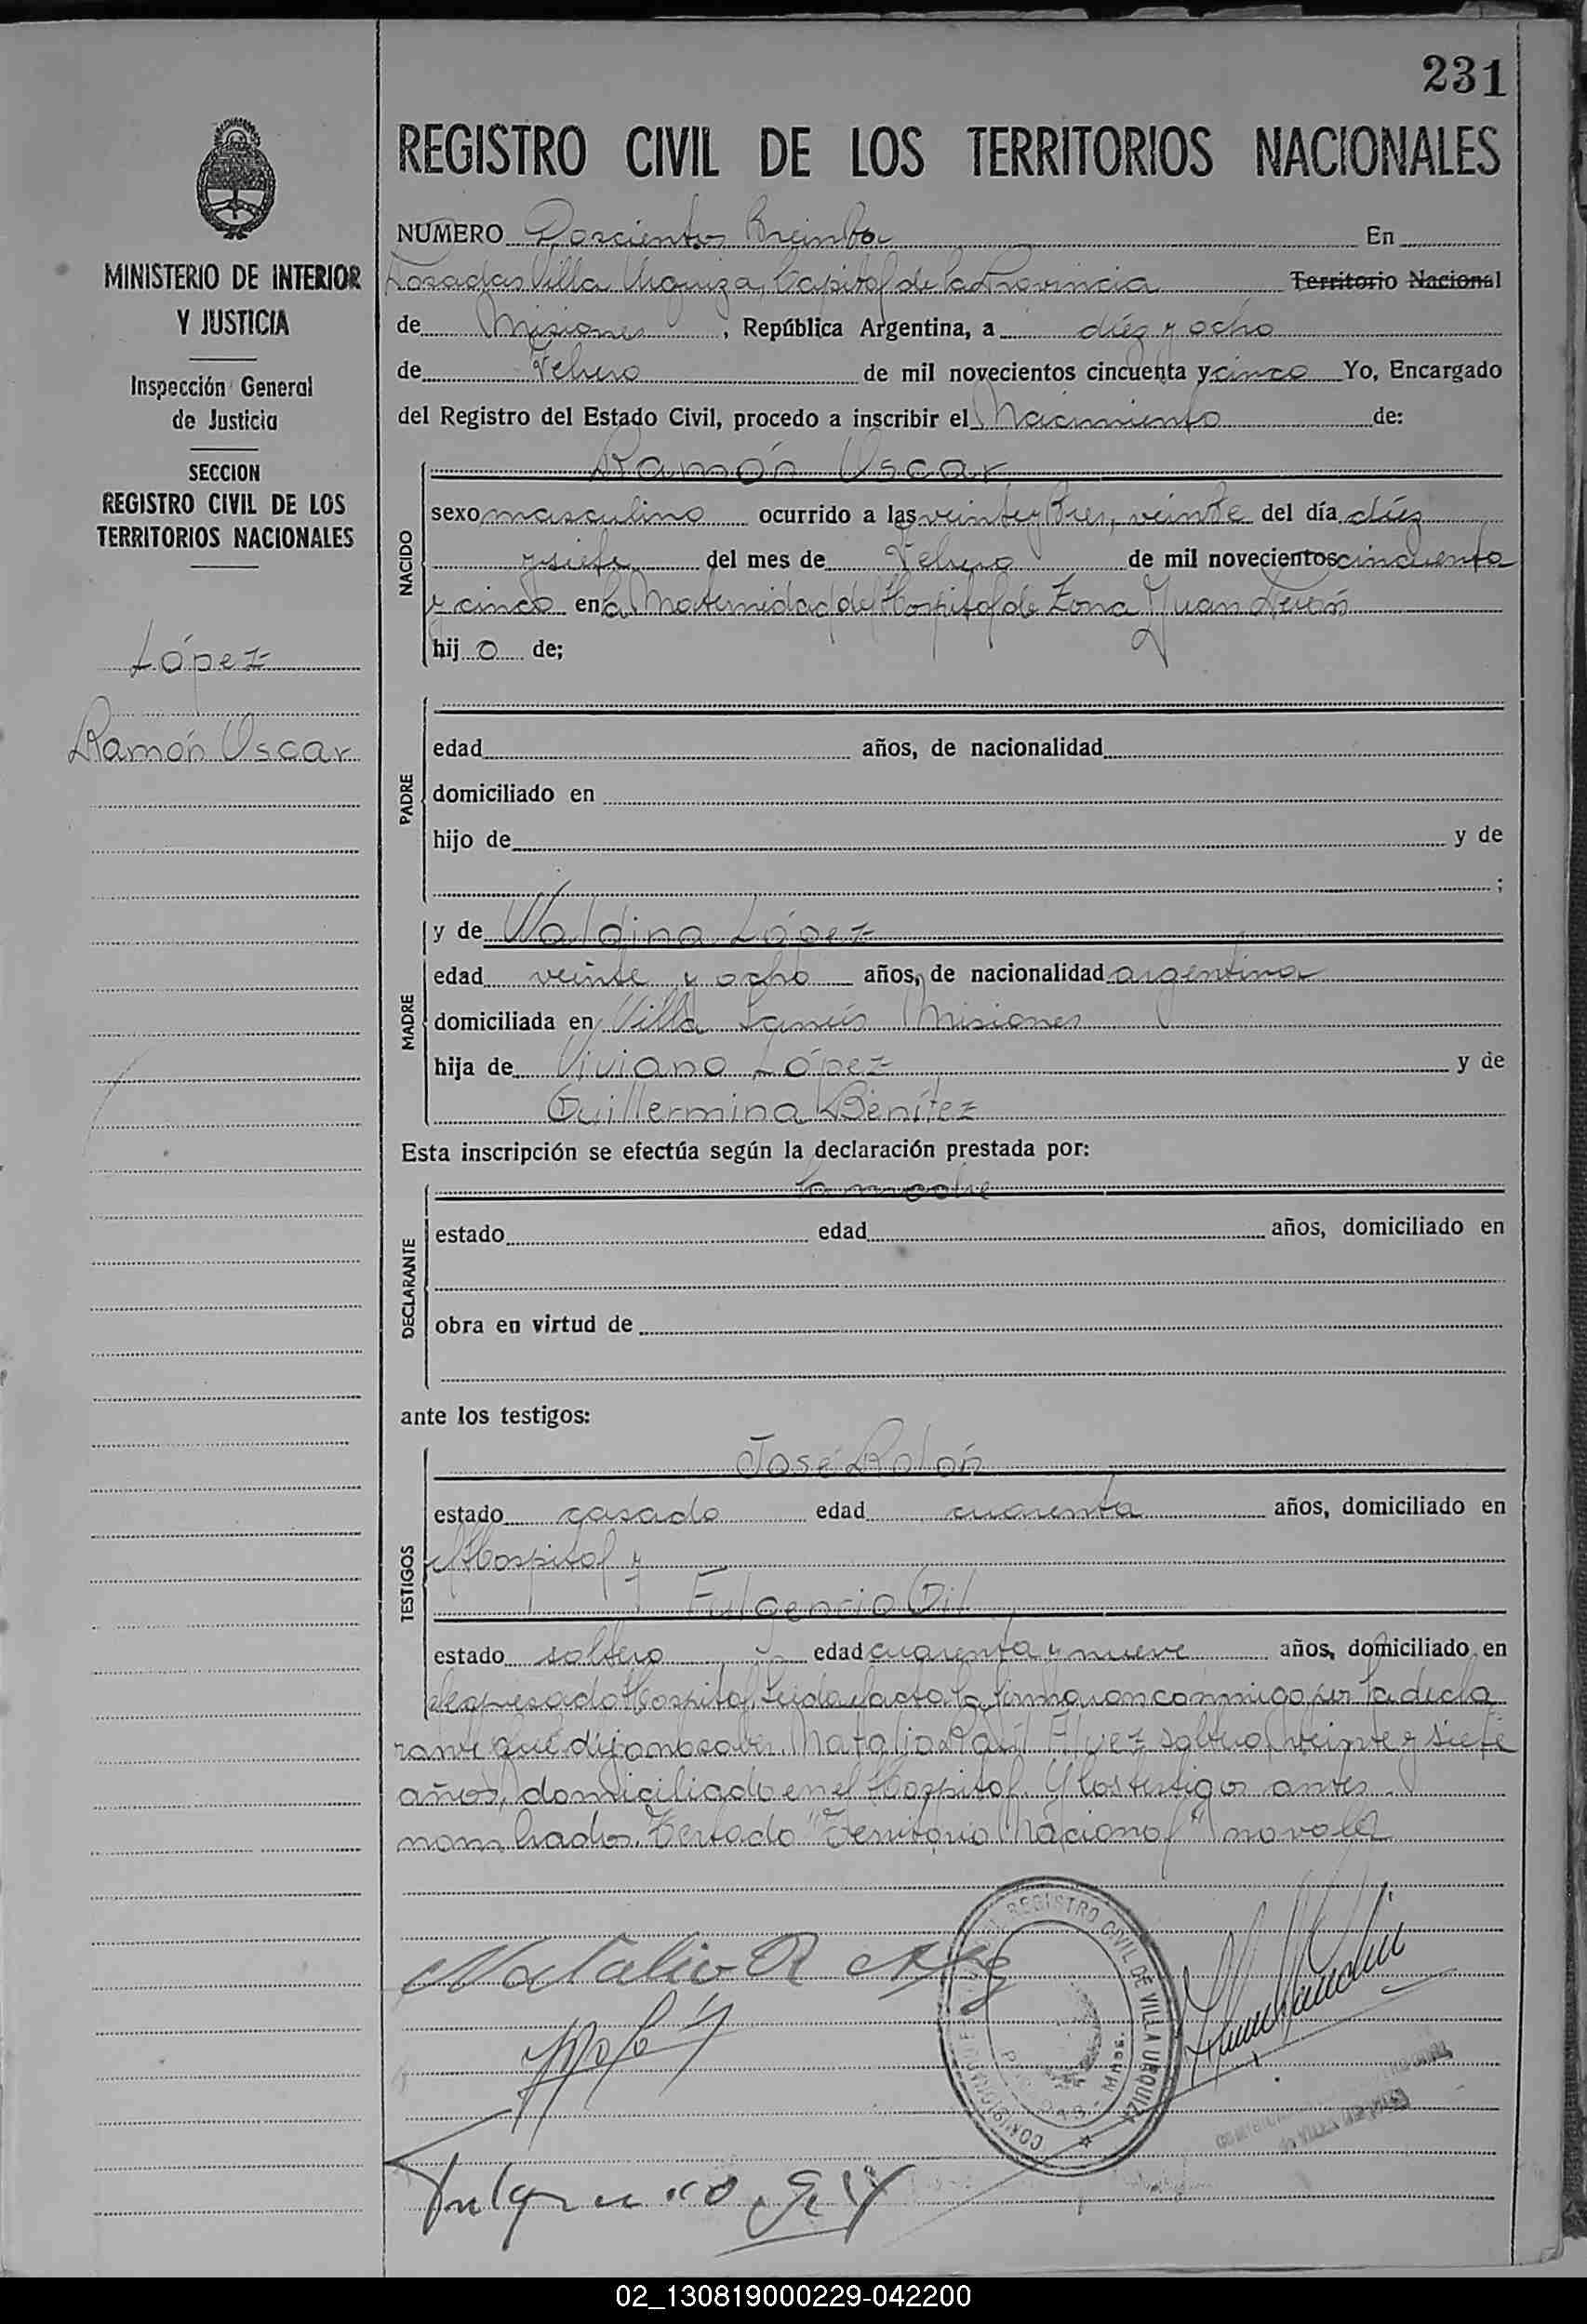 231
REGISTRO CIVIL DE LOS TERRITORIOS NACIONALES
MINISTERIO DE INTERIOR
Y JUSTICIA
Inspección General
de Justicia
SECCION
REGISTRO CIVIL DE LOS
TERRITORIOS NACIONALES
López
Ramón Oscar
NUMERO Doscientos treinta En
Posadas Villa Urquiza, Capital de la Provincia Territorio Nacional
de Misiones, República Argentina, a diez y ocho
de Febrero de mil novecientos cincuenta y cinco Yo, Encargado
del Registro del Estado Civil, procedo a inscribir el Nacimiento de:
NACIDO
Ramón Oscar
sexo masculino ocurrido a las veinte y tres, veinte del día diez
y siete del mes de Febrero de mil novecientos cincuenta
y cinco en la Maternidad del Hospital de Zona Juan Perón
hij o de;
PADRE
edad años, de nacionalidad
domiciliado en
hijo de y de
;
MADRE
y de Waldina López
edad veinte y ocho años, de nacionalidad argentina
domiciliada en Villa Lanús Misiones
hija de Viviano López y de
Guillermina Benítez
Esta inscripción se efectúa según la declaración prestada por:
DECLARANTE
la madre
estado edad años, domiciliado en
obra en virtud de
ante los testigos:
TESTIGOS
José Rolón
estado casado edad cuarenta años, domiciliado en
el Hospital y
Fulgencio Gil
estado soltero edad cuarenta y nueve años, domiciliado en
el expresado Hospital. Leida el acta la firmaron conmigo por la decla
rante que dijo no saber. Natalio Raúl Alvez soltero, veinte y siete
años, domiciliado en el Hospital. Y los testigos antes
nombrados. Testado "Territorio Nacional" no vale
Natalio R
REGISTRO CIVIL DE VILLA URQUIZA
Fulgencio Gil
02_130819000229-042200